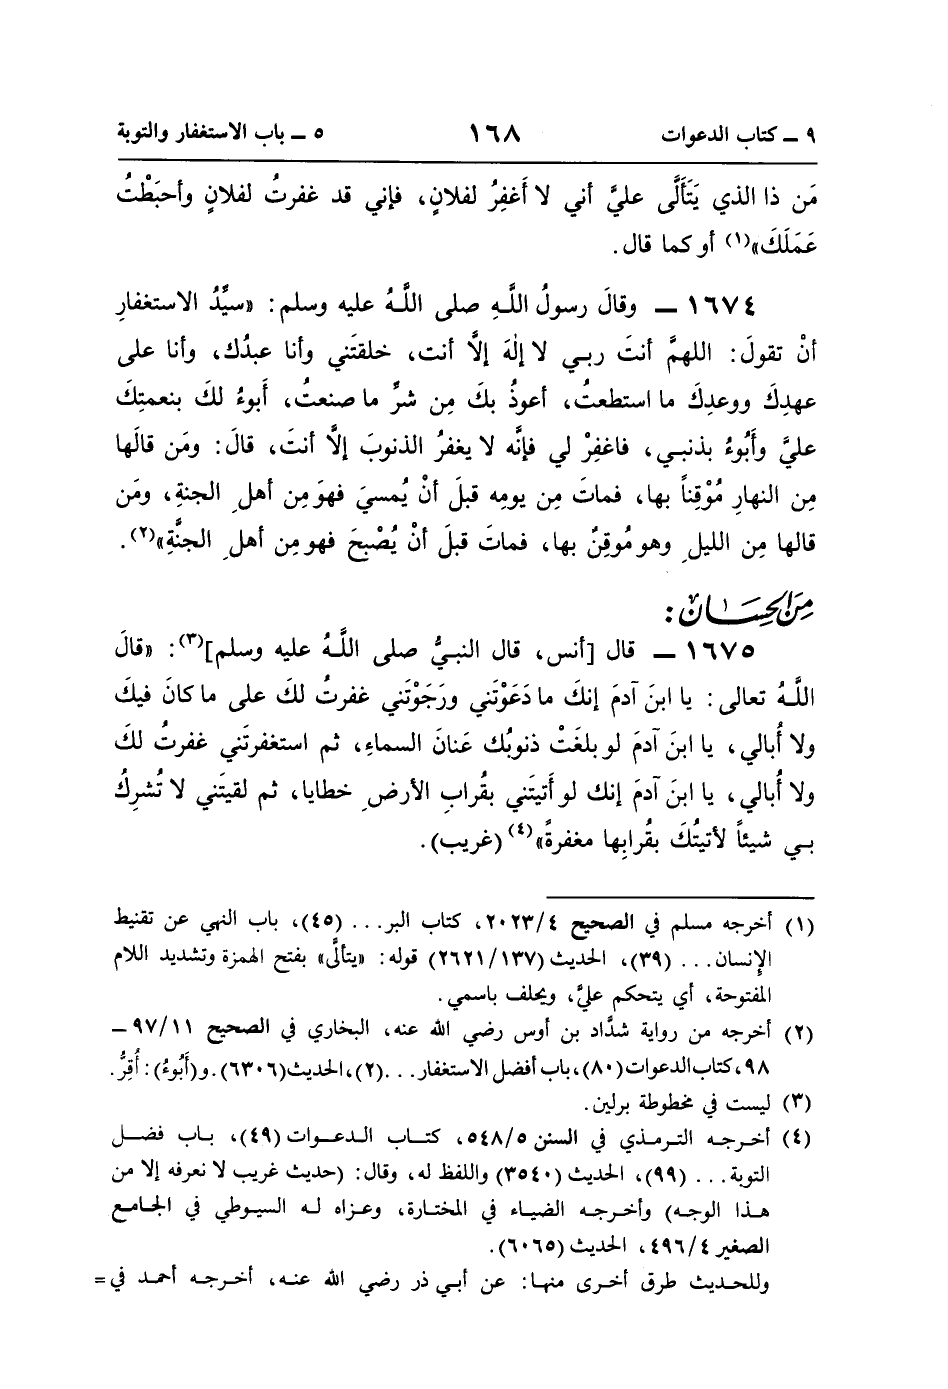 ٩ ــ كتاب الدعوات ١٦٨ ٥ ــ باب الاستغفار والتوبة
مَن ذا الذي يَتَأَلَّى عليَّ أني لا أَغفِرُ لفلانٍ، فإني قد غفرتُ لفلانٍ وأحبَطْتُ
عَمَلَكَ»(١) أو كما قال.
١٦٧٤ ــ وقالَ رسولُ اللَّهِ صلى اللَّهُ عليه وسلم: «سيِّدُ الاستغفارِ
أنْ تقولَ: اللهمَّ أنتَ ربي لا إلهَ إلَّا أنت، خلقتَني وأنا عبدُك، وأنا على
عهدِكَ ووعدِكَ ما استطعتُ، أعوذُ بكَ مِن شرِّ ما صنعتُ، أَبوءُ لكَ بنعمتِكَ
عليَّ وأَبُوءُ بذنبي، فاغفِرْ لي فإنَّه لا يغفرُ الذنوبَ إلَّا أنتَ، قالَ: ومَن قالَها
مِن النهارِ مُوْقِناً بها، فماتَ مِن يومِه قبلَ أنْ يُمسيَ فهوَ مِن أهلِ الجنةِ، ومَن
قالها مِن الليلِ وهو مُوقِنٌ بها، فماتَ قبلَ أنْ يُصْبِحَ فهو مِن أهلِ الجنَّةِ»(٢).
مِنَ الحِسَان:
١٦٧٥ ــ قال [أنس، قال النبيُّ صلى اللَّهُ عليه وسلم](٣): «قالَ
اللَّهُ تعالى: يا ابنَ آدمَ إنكَ ما دَعَوْتَني ورَجَوْتَني غفرتُ لكَ على ما كانَ فيكَ
ولا أُبالي، يا ابنَ آدمَ لو بلغَتْ ذنوبُك عَنانَ السماءِ، ثم استغفرتَني غفرتُ لكَ
ولا أُبالي، يا ابنَ آدمَ إنك لو أَتيتَني بقُرابِ الأرضِ خطايا، ثم لقيتَني لا تُشرِكُ
بي شيئاً لأتيتُكَ بقُرابِها مغفرةً»(٤) (غريب).
(١) أخرجه مسلم في الصحيح ٢٠٢٣/٤، كتاب البر... (٤٥)، باب النهي عن تقنيط
الإنسان... (٣٩)، الحديث (٢٦٢١/١٣٧) قوله: «يتألَّى» بفتح الهمزة وتشديد اللام
المفتوحة، أي يتحكم عليَّ، ويحلف باسمي.
(٢) أخرجه من رواية شدَّاد بن أوس رضي الله عنه، البخاري في الصحيح ٩٧/١١ ــ
٩٨، كتاب الدعوات (٨٠)، باب أفضل الاستغفار... (٢)، الحديث (٦٣٠٦). و(أَبُوءُ): أُقِرُّ.
(٣) ليست في مخطوطة برلين.
(٤) أخرجه الترمذي في السنن ٥٤٨/٥، كتاب الدعوات (٤٩)، باب فضل
التوبة... (٩٩)، الحديث (٣٥٤٠) واللفظ له، وقال: (حديث غريب لا نعرفه إلا من
هذا الوجه) وأخرجه الضياء في المختارة، وعزاه له السيوطي في الجامع
الصغير ٤٩٦/٤، الحديث (٦٠٦٥).
وللحديث طرق أخرى منها: عن أبي ذر رضي الله عنه، أخرجه أحمد في=